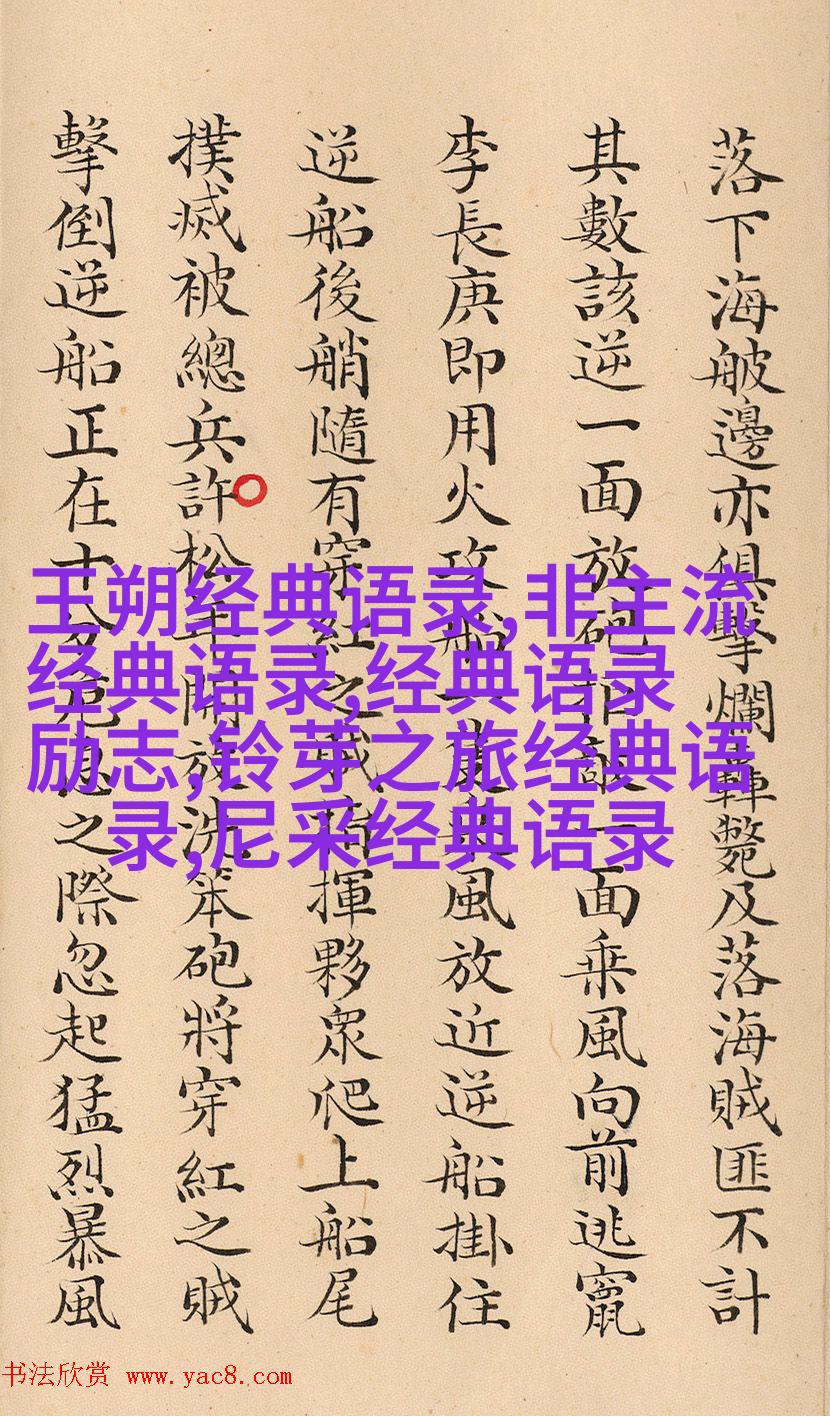 落下海邊亦俱擊爛轟斃及落海賊匪不計
其數該逆一面放砲拒敵一面乗風向前逃竄
李長庚即用火攻船一隻乗風放近逆船掛住
逆船後艄隨有穿紅之賊指揮夥眾爬上船尾
撲滅被總兵許松年開放洗笨砲將穿紅之賊
擊倒逆船正在十分危急之際忽起猛烈暴風
王朔经典语录,非主流
经典语录,经典语录
励志,铃芽之旅经典语
录,尼采经典语录
书法欣赏 www.yac8.com